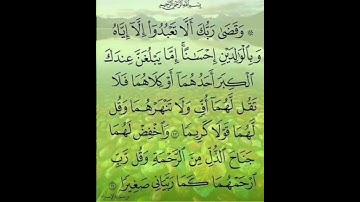 بِسْمِ اللَّهِ الرَّحْمَٰنِ الرَّحِيمِ
۞ وَقَضَىٰ رَبُّكَ أَلَّا تَعْبُدُوٓا۟ إِلَّآ إِيَّاهُ
وَبِٱلْوَٰلِدَيْنِ إِحْسَٰنًا ۚ إِمَّا يَبْلُغَنَّ عِندَكَ
ٱلْكِبَرَ أَحَدُهُمَآ أَوْ كِلَاهُمَا فَلَا
تَقُل لَّهُمَآ أُفٍّ وَلَا تَنْهَرْهُمَا وَقُل
لَّهُمَا قَوْلًا كَرِيمًا ٢٣ وَٱخْفِضْ لَهُمَا
جَنَاحَ ٱلذُّلِّ مِنَ ٱلرَّحْمَةِ وَقُل رَّبِّ
ٱرْحَمْهُمَا كَمَا رَبَّيَانِى صَغِيرًا ٢٤